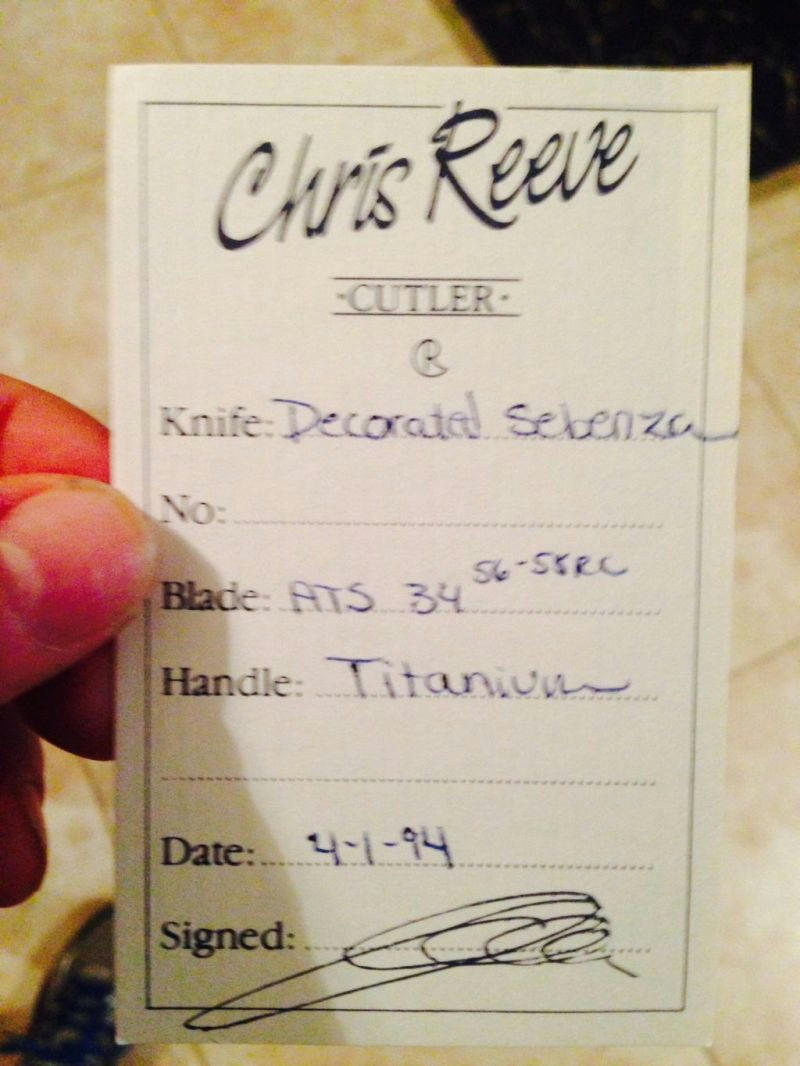 Chris Reeve
·CUTLER·
CR
Knife: Decorated Sebenza
No:
Blade: ATS 34 56-58RC
Handle: Titanium
Date: 4-1-94
Signed: